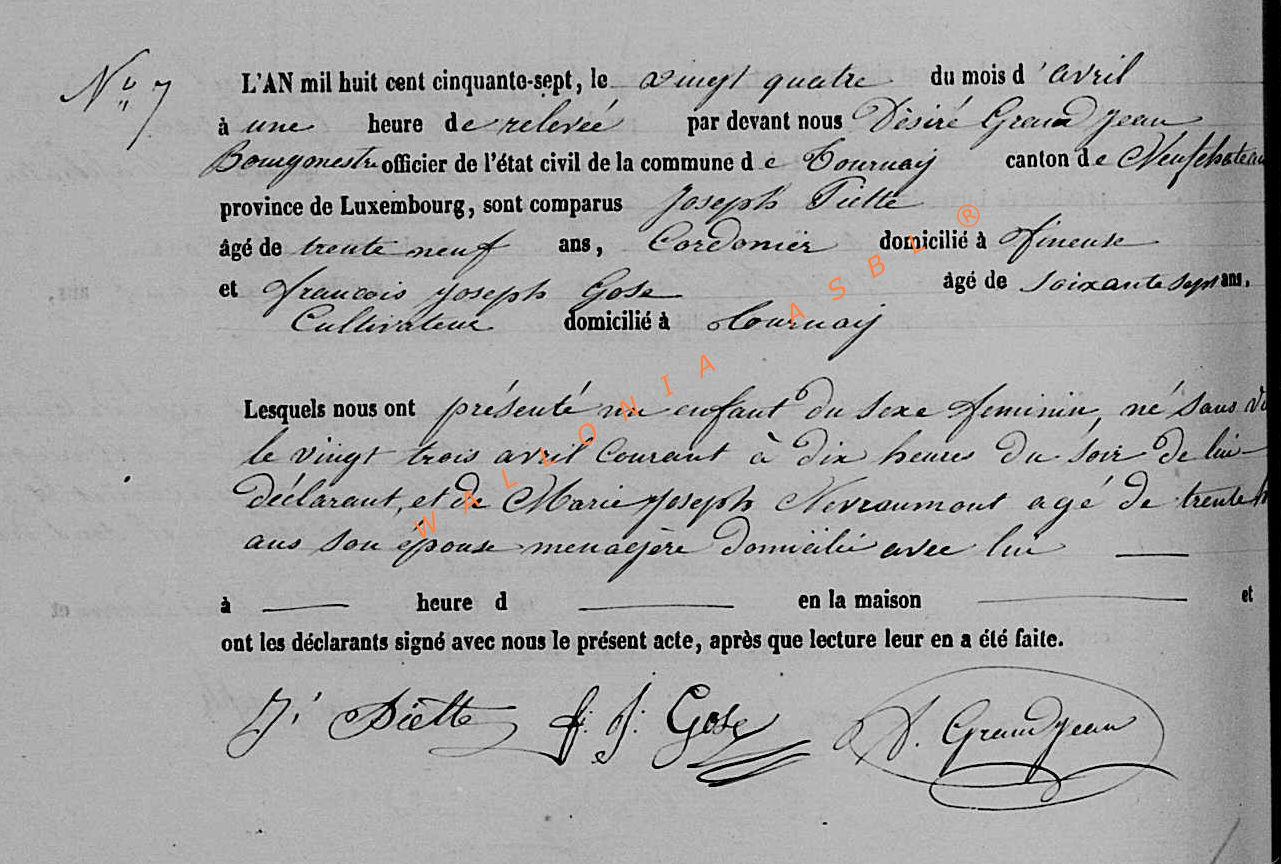 N° 7
L'AN mil huit cent cinquante-sept, le vingt quatre du mois d'avril
à une heure de relevée par devant nous Désiré Grand Jean
Bourgmestre officier de l'état civil de la commune de Tournay canton de Neufchateau
province de Luxembourg, sont comparus Joseph Piette
âgé de trente neuf ans, Cordonier domicilié à Fineuse
et francois joseph Gose âgé de soixante sept ans,
Cultivateur domicilié à tournay
Lesquels nous ont présenté un enfant du sexe feminin, né sans
le vingt trois avril courant à dix heures du soir de lui
déclarant, et de Marie Joseph Nevraumont agé de trente
ans son épouse menagère domicilié avec lui
à heure d en la maison et
ont les déclarants signé avec nous le présent acte, après que lecture leur en a été faite.
J. Piette f. J. Gose D. Grandjean
WALLONIA ASBL ®